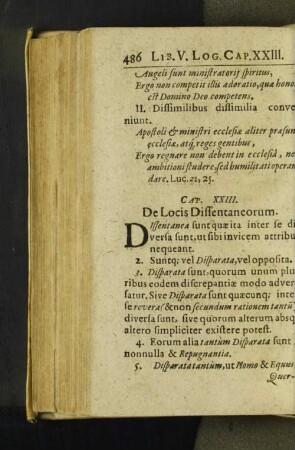 486 LIB. V. LOG. CAP. XXIII.
Angeli sunt ministratorij spiritus,
Ergo non competit illis adoratio, quæ hono
est Domino Deo competens,
II. Dissimilibus dissimilia conve
niunt.
Apostoli & ministri ecclesiæ aliter præsunt
ecclesiæ, atq; reges gentibus,
Ergo regnare non debent in ecclesiâ, ne
ambitioni studere, sed humilitati operam
dare. Luc. 22, 25.
CAP. XXIII.
De Locis Dissentaneorum.
DIssentanea sunt quæ ita inter se di
versa sunt, ut sibi invicem attribu
nequeant.
2. Suntq; vel Disparata, vel opposita.
3. Disparata sunt, quorum unum plu
ribus eodem discrepantiæ modo adver
satur. Sive Disparata sunt quæcunq; inter
se reverâ & non secundum rationem tantū
diversa sunt, sive quorum alterum absq
altero simpliciter existere potest.
4. Eorum alia tantùm Disparata sunt
nonnulla & Repugnantia.
5. Disparata tantùm, ut Homo & Equus
Quer-